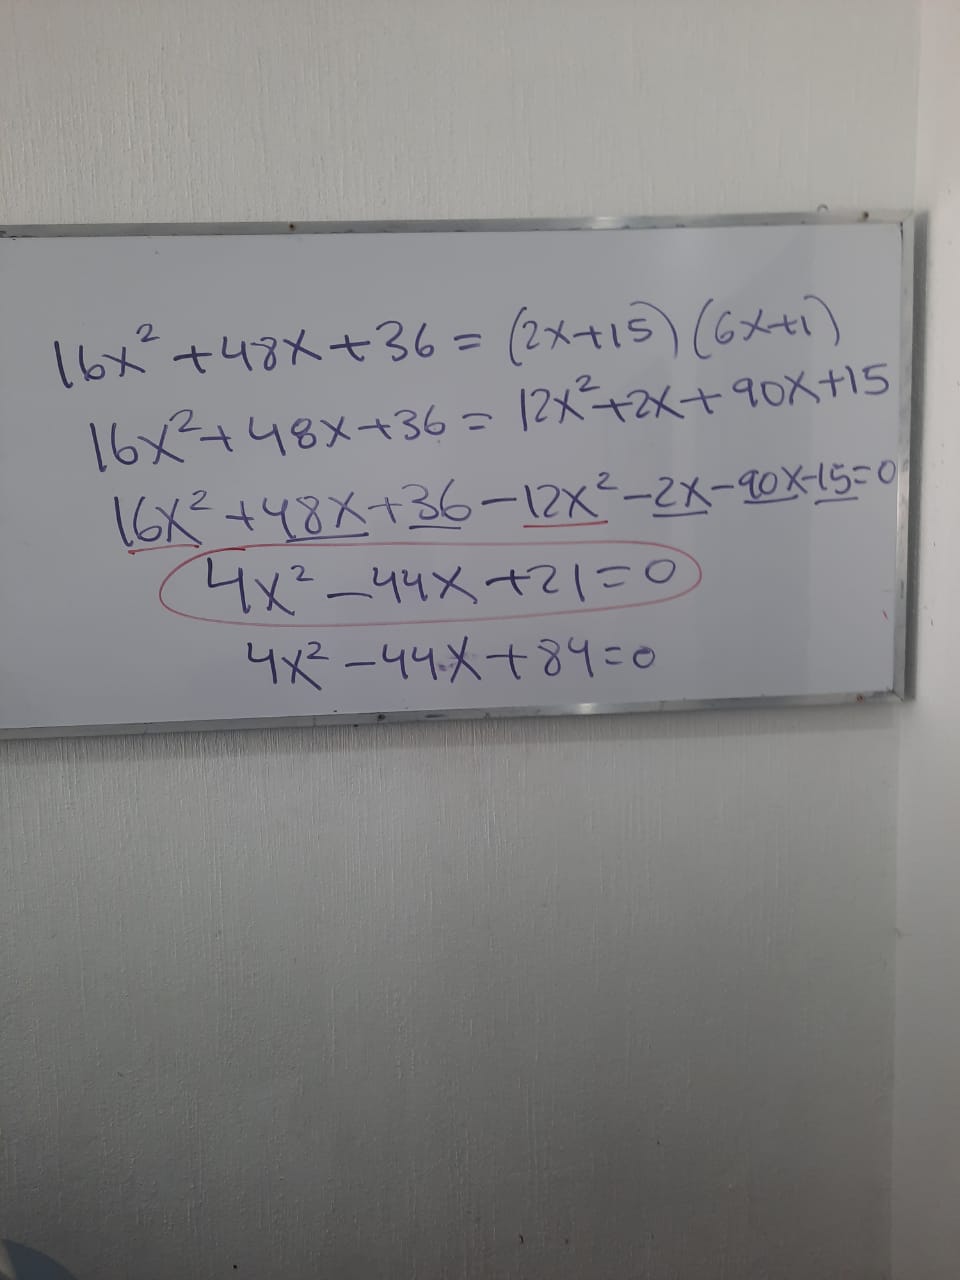 16x² + 48x + 36 = (2x+15)(6x+1)
16x² + 48x + 36 = 12x² + 2x + 90x + 15
16x² + 48x + 36 - 12x² - 2x - 90x - 15 = 0
4x² - 44x + 21 = 0
4x² - 44x + 84 = 0